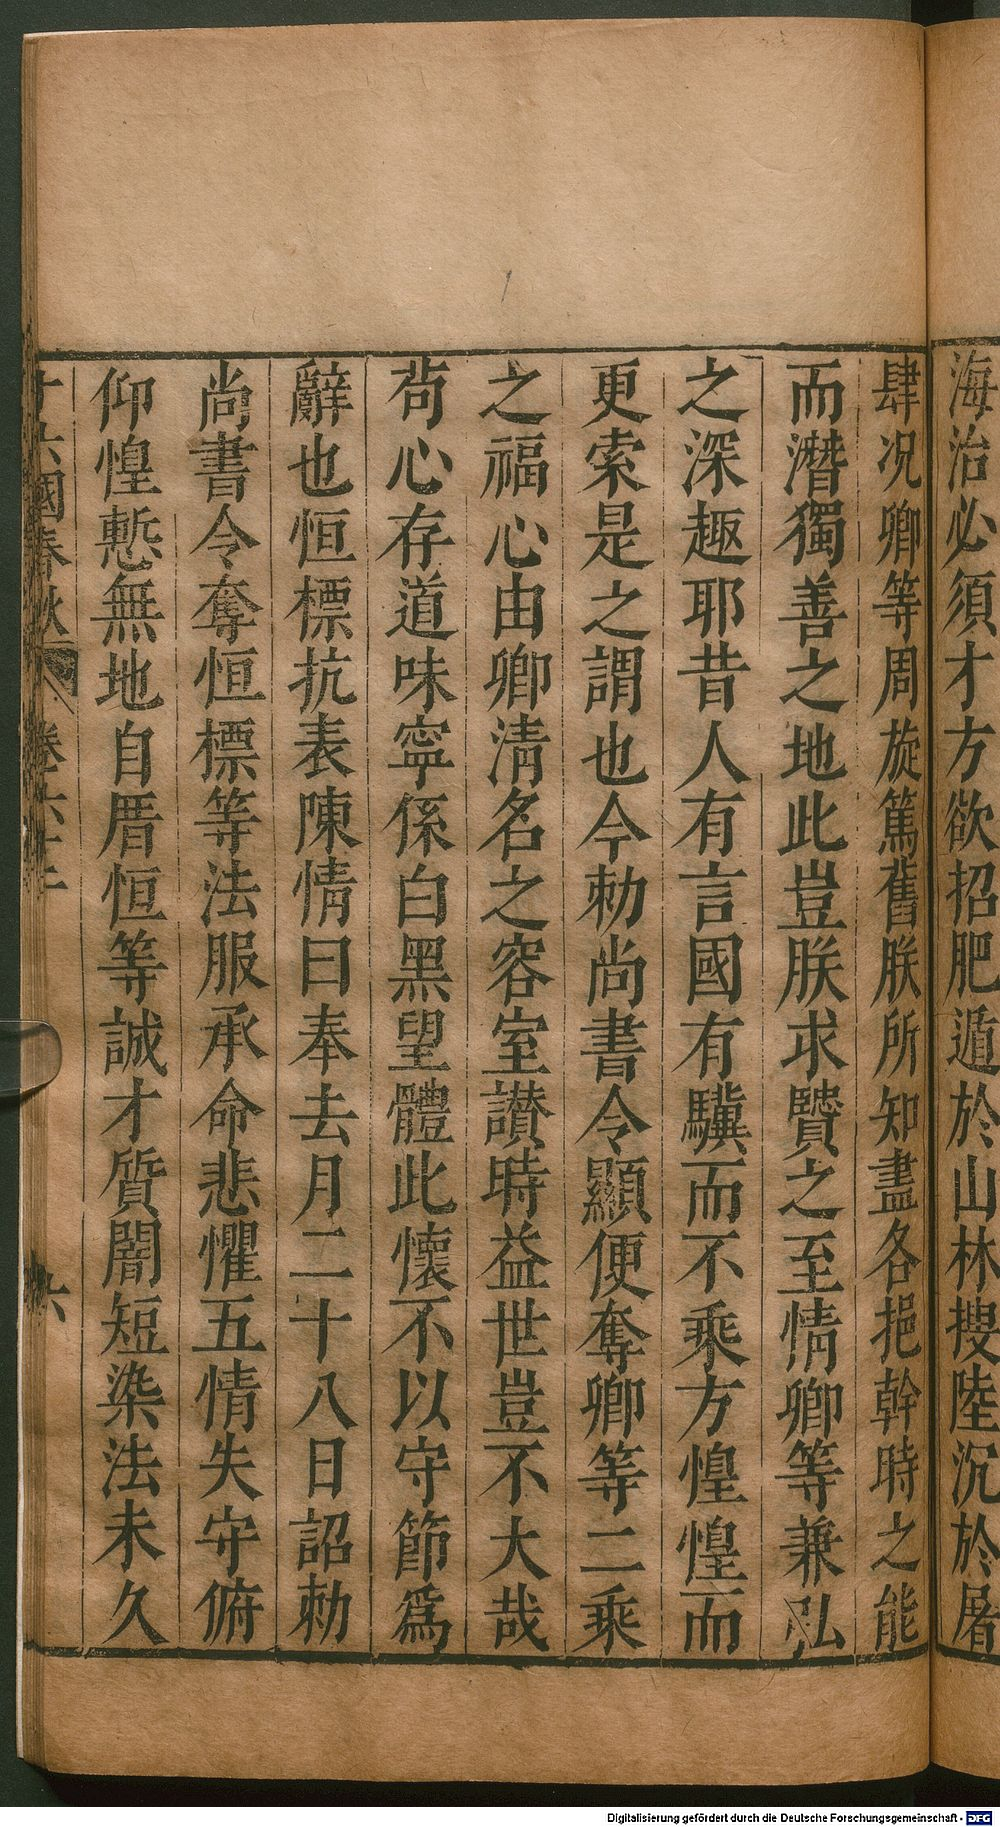 海治必須才方欲招肥遁於山林搜陸沉於屠
肆况卿等周旋篤舊朕所知盡各挹幹時之能
而潛獨善之地此豈朕求賢之至情卿等兼弘
之深趣耶昔人有言國有驥而不乘方惶惶而
更索是之謂也今勅尚書令顯便奪卿等二乘
之福心由卿清名之容室讃時益世豈不大哉
茍心存道味寧係白黑望體此懷不以守節爲
辭也恒標抗表陳情曰奉去月二十八日詔勅
尚書令奪恒標等法服承命悲懼五情失守俯
仰惶慙無地自厝恒等誠才質闇短染法未久
十六國春秋 卷六十二 六
Digitalisierung gefördert durch die Deutsche Forschungsgemeinschaft - DFG